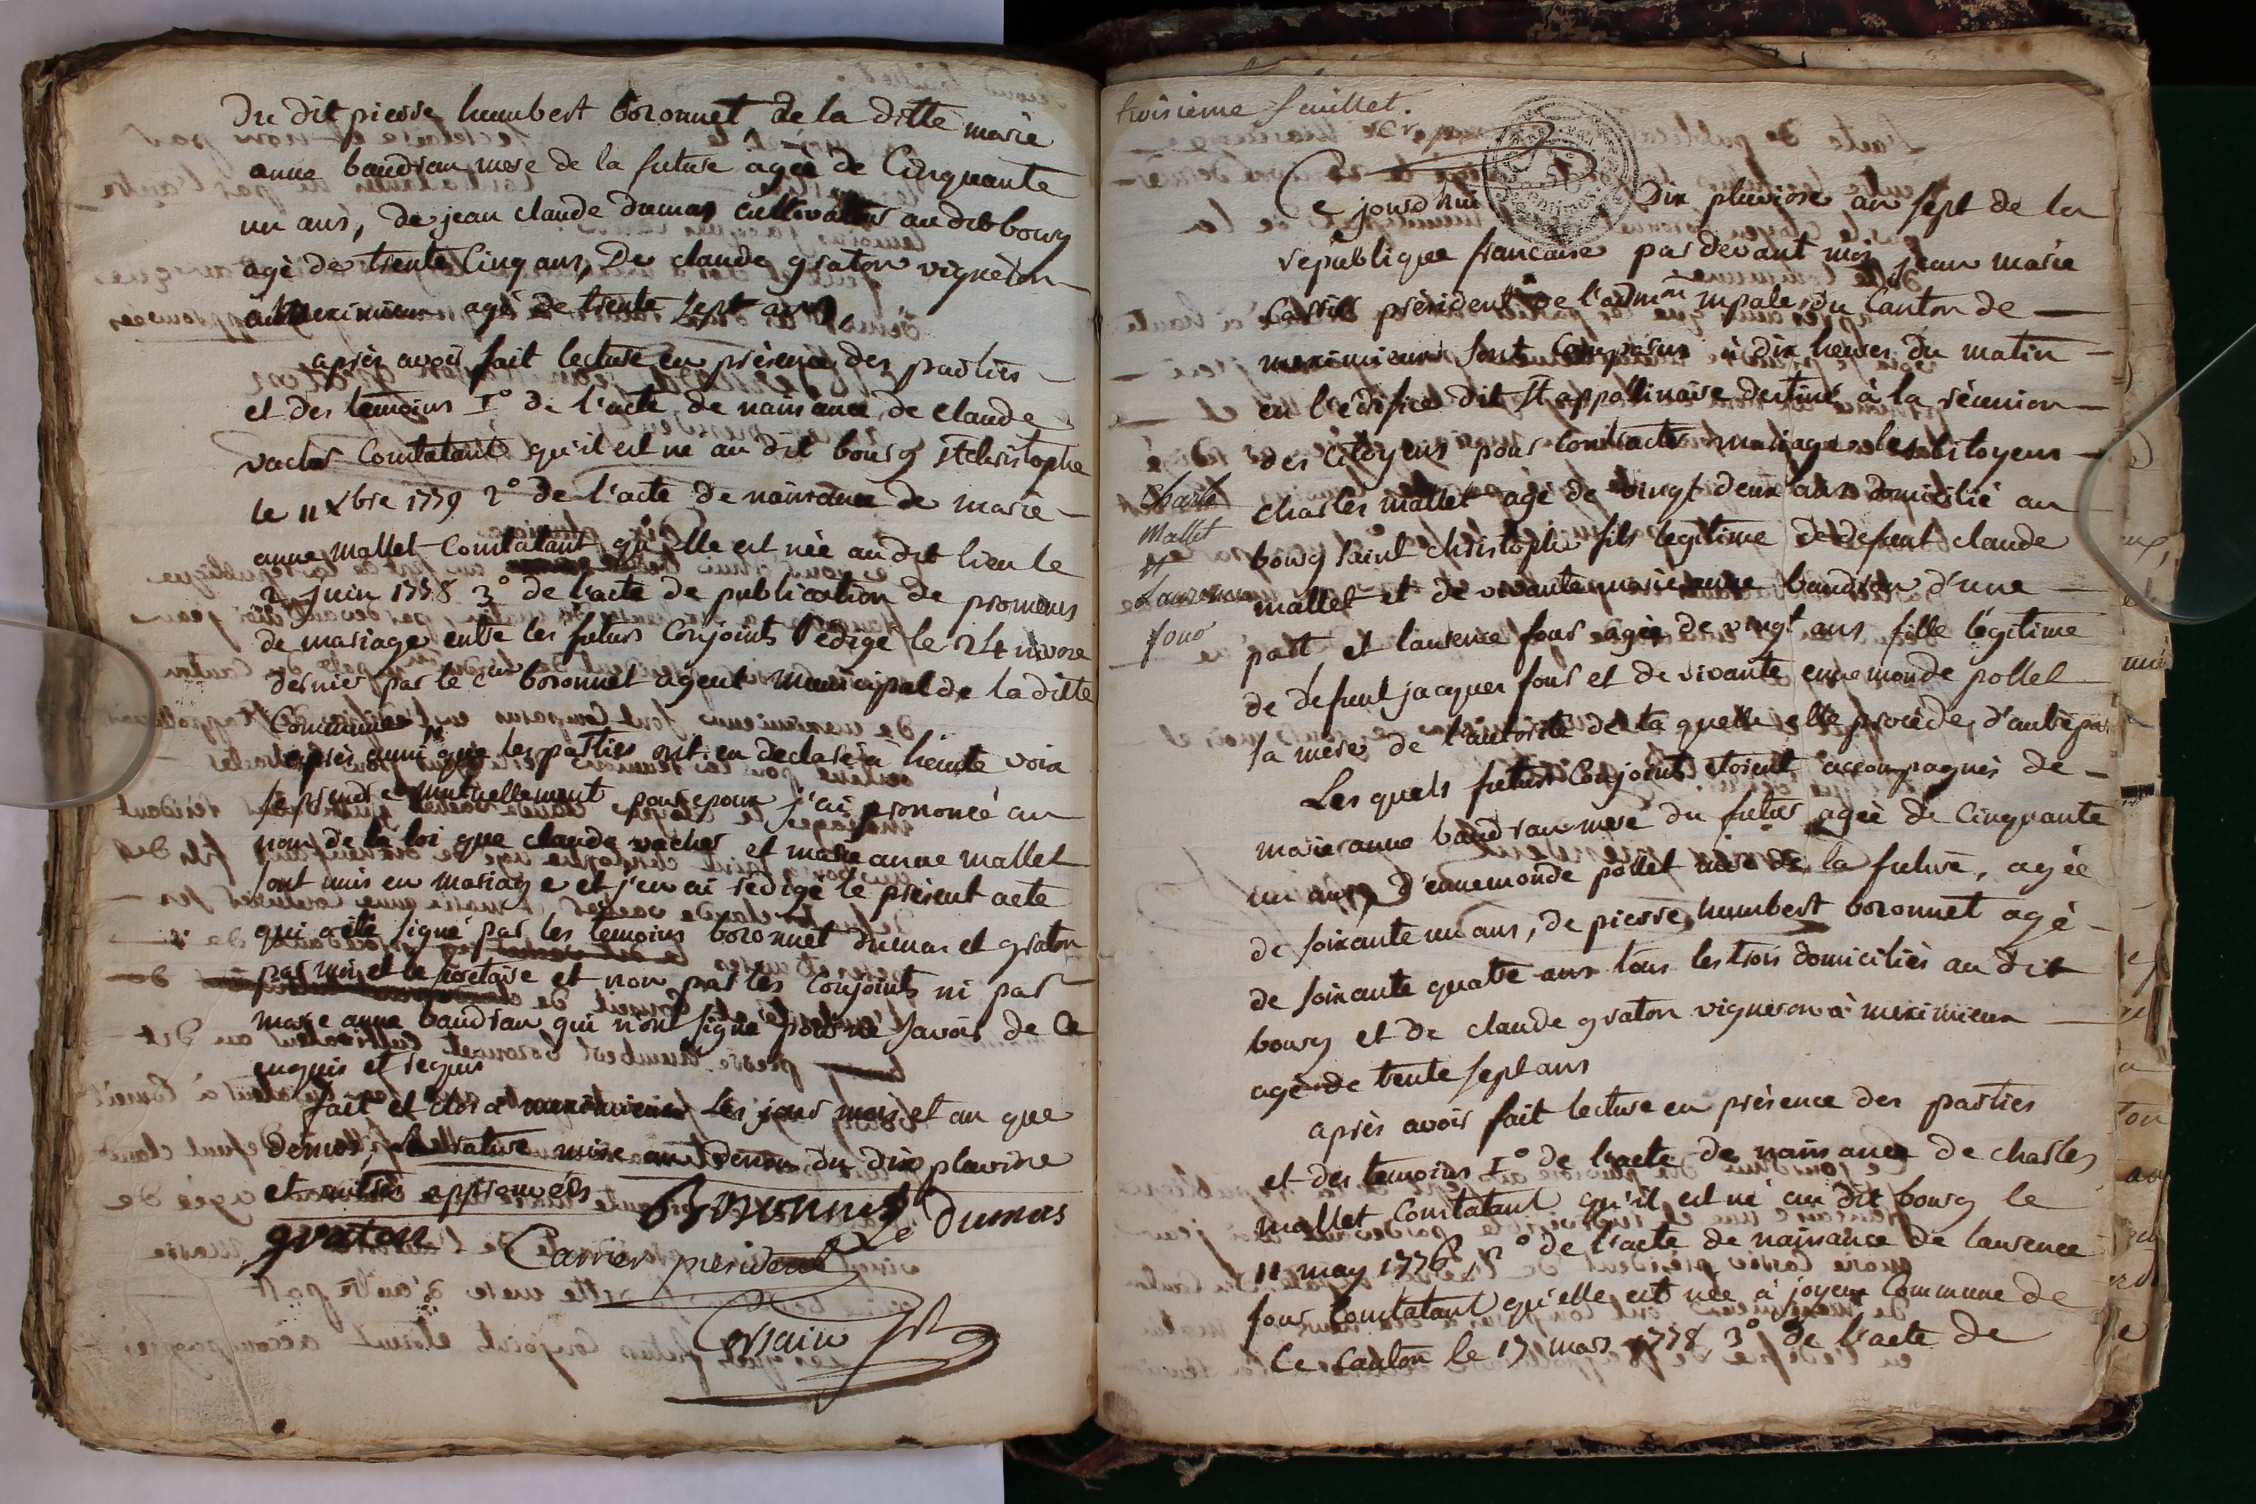 Du dit pierre humbert boronnet de la ditte marie
anne baudran mere de la future agée de Cinquante
un ans, de jean claude dumas cultivateur au dit bourg
agé de trente Cinq ans, De claude graton vigneron
a meximieux agé de trente sept ans.
après avoir fait lecture en présence des parties
et des temoins 1° de l'acte de naissance de claude
vacher Constatant qu'il est né au dit bourg st christophe
le 11 Xbre 1779 2° de l'acte de naissance de marie
anne mallet Constatant qu'elle est née au dit lieu le
2 juin 1778 3° de l'acte de publication de promesses
de mariage entre les futurs Conjoints redigé le 24 nivose
dernier par le Cen boronnet agent municipal de la ditte
Commune
après aussi que les parties ont eu declaré à haute voix
se prendre mutuellement pour epoux j'ai prononcé au
nom de la loi que claude vacher et marie anne mallet
sont unis en mariage et j'en ai redigé le présent acte
qui a été signé par les temoins boronnet dumas et graton
par moi et le secretaire et non par les Conjoints ni par
marie anne baudran qui n'ont signé pour ne savoir de Ce
enquis et requis
fait et clos a meximieux Les jour mois et an que
dessus, la rature mise au denon du dix pluviose
et autres approuvées
Boronnet
graton
Le Dumas
Carrier président
troisieme feuillet.
Ce jourd'hui Dix pluviose an sept de la
république française par devant moi jean marie
Carrier président de l'admon mpale du Canton de
meximieux sont Comparus à dix heures du matin
en l'édifice dit St appollinaire destiné à la réunion
des Citoyens pour Contracter mariage les Citoyens
charles mallet agé de vingt deux ans domicilié au
bourg saint christophe fils legitime de defunt claude
mallet et de vivante marie anne baudran d'une
part et laurence four agée de vingt ans fille légitime
de defunt jacques four et de vivante ennemonde pollet
sa mere de l'autorité de la quelle elle procéde, d'autre par
Charle
Mallet
et
Laurence
four
Les quels futurs Conjoints étoient accompagnés de
marie anne baudran mere du futur agée de Cinquante
un ans, d'ennemonde pollet mere de la future, agée
de soixante un ans, de pierre humbert boronnet agé
de soixante quatre ans tous les trois domiciliés au dit
bourg et de claude graton vigneron à meximieux
agé de trente sept ans
après avoir fait lecture en présence des parties
et des temoins 1° de l'acte de naissance de charles
mallet Constatant qu'il est né au dit bourg le
11 may 1776, 2° de l'acte de naissance de laurence
four Constatant qu'elle est née à joyeux Commune de
Ce Canton le 17 mars 1778, 3° de l'acte de